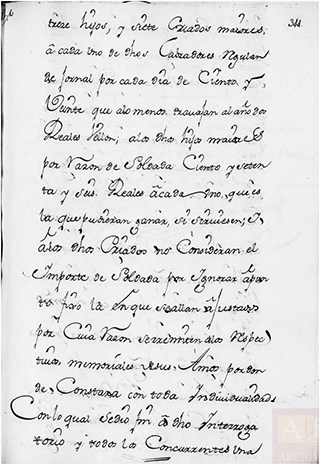 311.
treze hijos; y siete Criados maiores;
â cada uno de dhos Labradores regulan
de Jornal por cada dia de Ciento y
Veinte que alo menos travajan al año dos
Reales Vellon; alos dhos hijos maiores
por razon de Soldada Ciento y seten
ta y seis Reales âcada uno, que es
la que pudieran ganar, si sirviesen; I
âlos dhos Criados no Consideran el
Importe de Soldada por Ignorar apun
to fixo la en que se allan ajustados
por Cuia razon se remiten alos respec
tivos memoriales de sus Amos por don
de Constara con toda Individualidad
Con lo qual se dio fin â dho Interroga
torio y todos los Concurrentes una